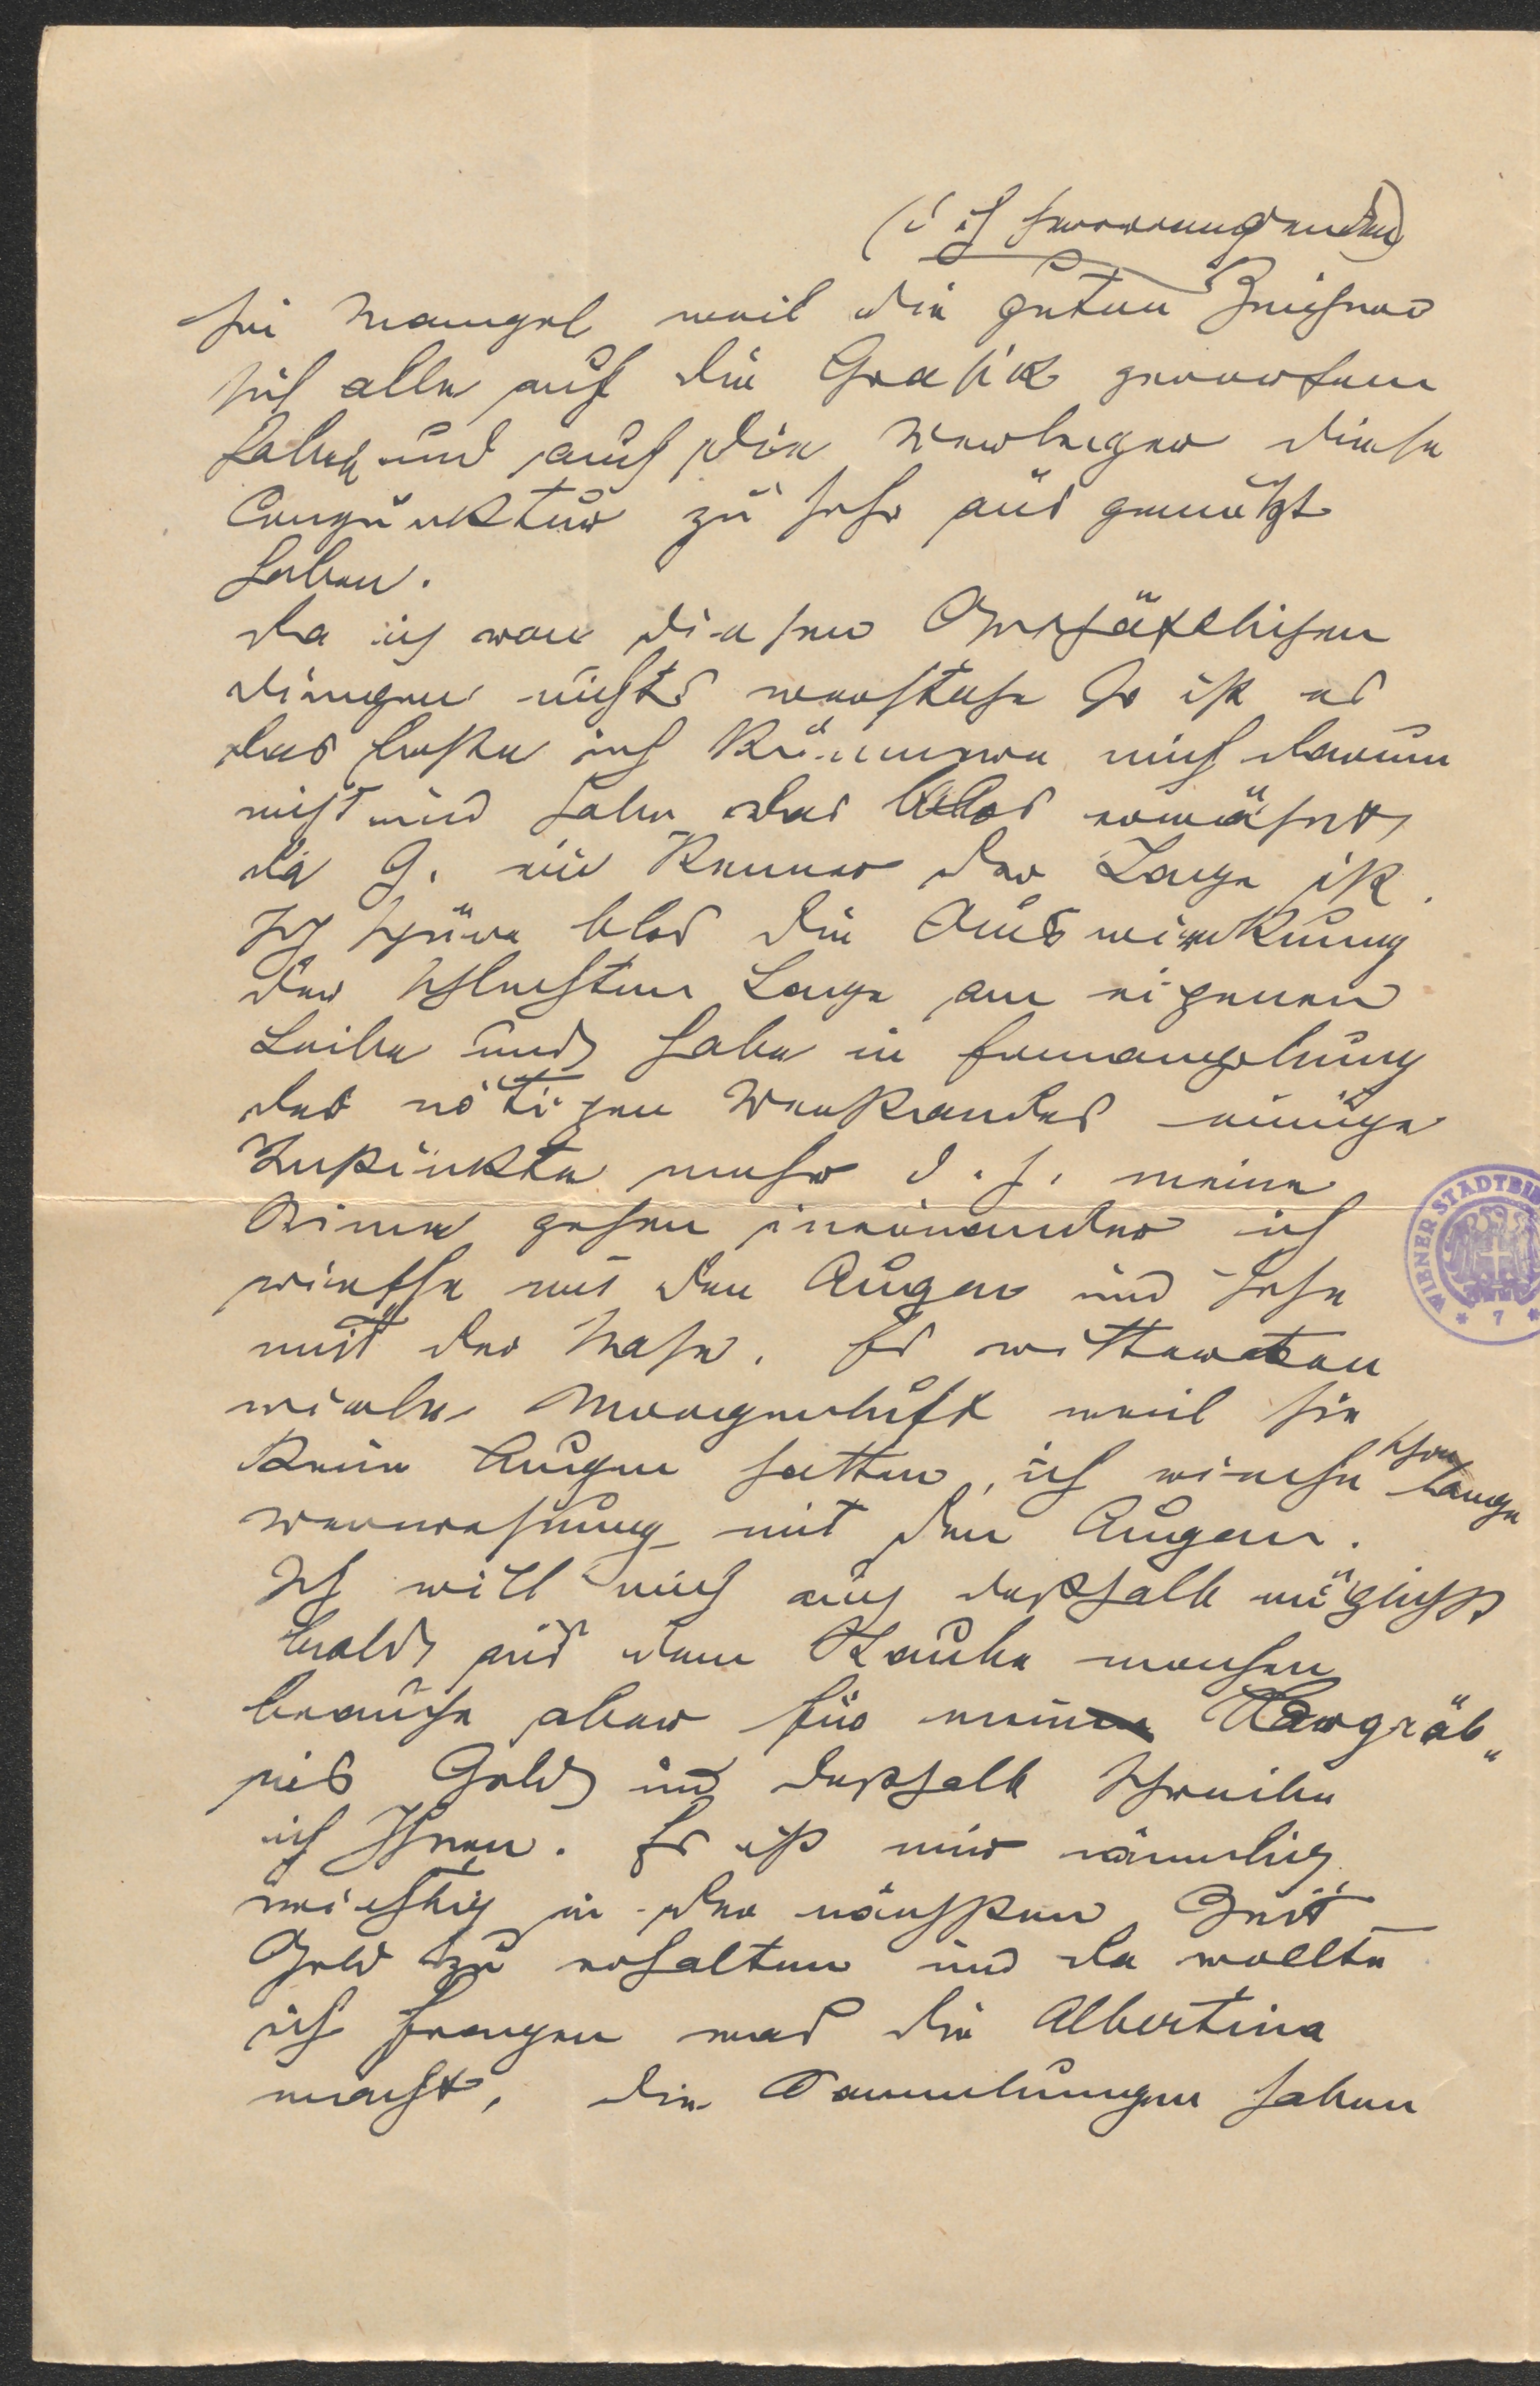 (d. h. hervorragenden)
sei Mangel weil die guten Zeichner
sich alle auf die Grafik geworfen
haben und auch die Verleger diese
Conjunktur zu sehr aus genützt
haben.
Da ich von diesen Geschäftlichen
Dingen nichts verstehe so ist es
das beste ich kümmere mich darum
nicht und habe das blos erwähnt
da G. ein Kenner der Lage ist.
Ich spüre blos die Auswirkung
der schlechten Lage am eigenen
Leibe und habe in Ermangelung
des nötigen Verstandes einige
Instinkte mehr d. h. meine
Sinne gehen ineinander ich
rieche mit den Augen und sehe
mit der Nase. Es witterten
viele Morgenluft weil sie
keine Augen hatten, ich rieche schon lange
Verwesung mit den Augen.
Ich will mich auch deshalb möglichst
bald aus dem Staube machen
brauche aber für mein Bergräb„
nis Geld und deshalb schreibe
ich Ihnen. Es ist mir nämlich
wichtig in der nächsten Zeit
Geld zu erhalten und da wollte
ich fragen was die Albertina
macht, die Sammlungen haben
WIENER STADTBI
* 7 *